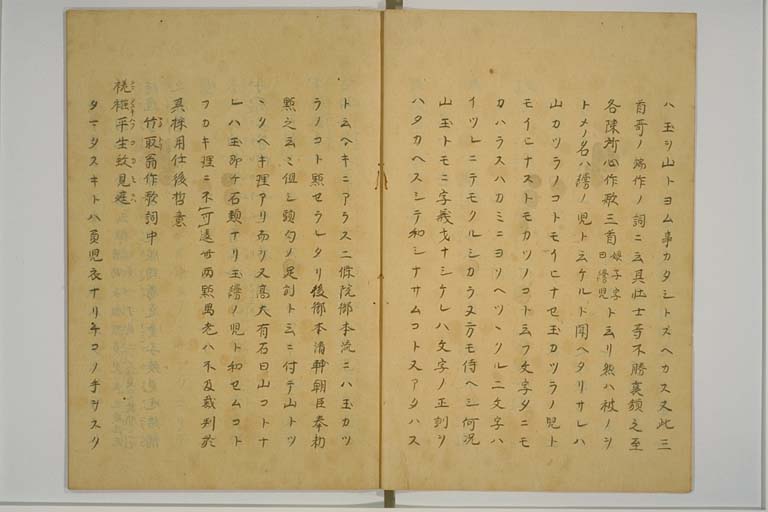 ハ玉ヲ山トヨム事カタシトスヘカラス又此三
首哥ノ端作ノ詞ニ云其壮士等不勝哀頽之至
各陳所心作歌三首娘子字曰縵児ト云リ然ハ彼ノヲ
トメノ名ハ縵ノ児ト云ケルト聞ヘタリサレハ
山カツラノコトモイヒナセ玉カツラノ児ト
モイヒナストモカツノコト云フ文字タニモ
カハラスハカミニヨリヘツヽクルニ文字ハ
イツレニテモクルシカラヌ方モ侍ヘシ何況
山玉トモニ字義タナシケレハ文字ノ正訓ヲ
ハタカヘスシテ和シナサムコトスアタハス
ト云ヘキニアラス二條院御本流ニハ玉カツ
ラノコト點セラレタリ後御本清輔朝臣奉初
點之云々但シ頸句ノ足訓ト云ニ付テ山トツ
ツクヘキ理アリ而ツ又高大有石曰山コトナ
レハ玉即ケ石類ナリ玉縵ノ児ト和セムコト
フカキ理ニ不可違世両點愚老ハ不及裁判於
真採用仕後哲意
竹取翁作歌詞中
褪襁平生蚊見庭
タマタスキトハ負児衣ナリチコノ手ヲスリ